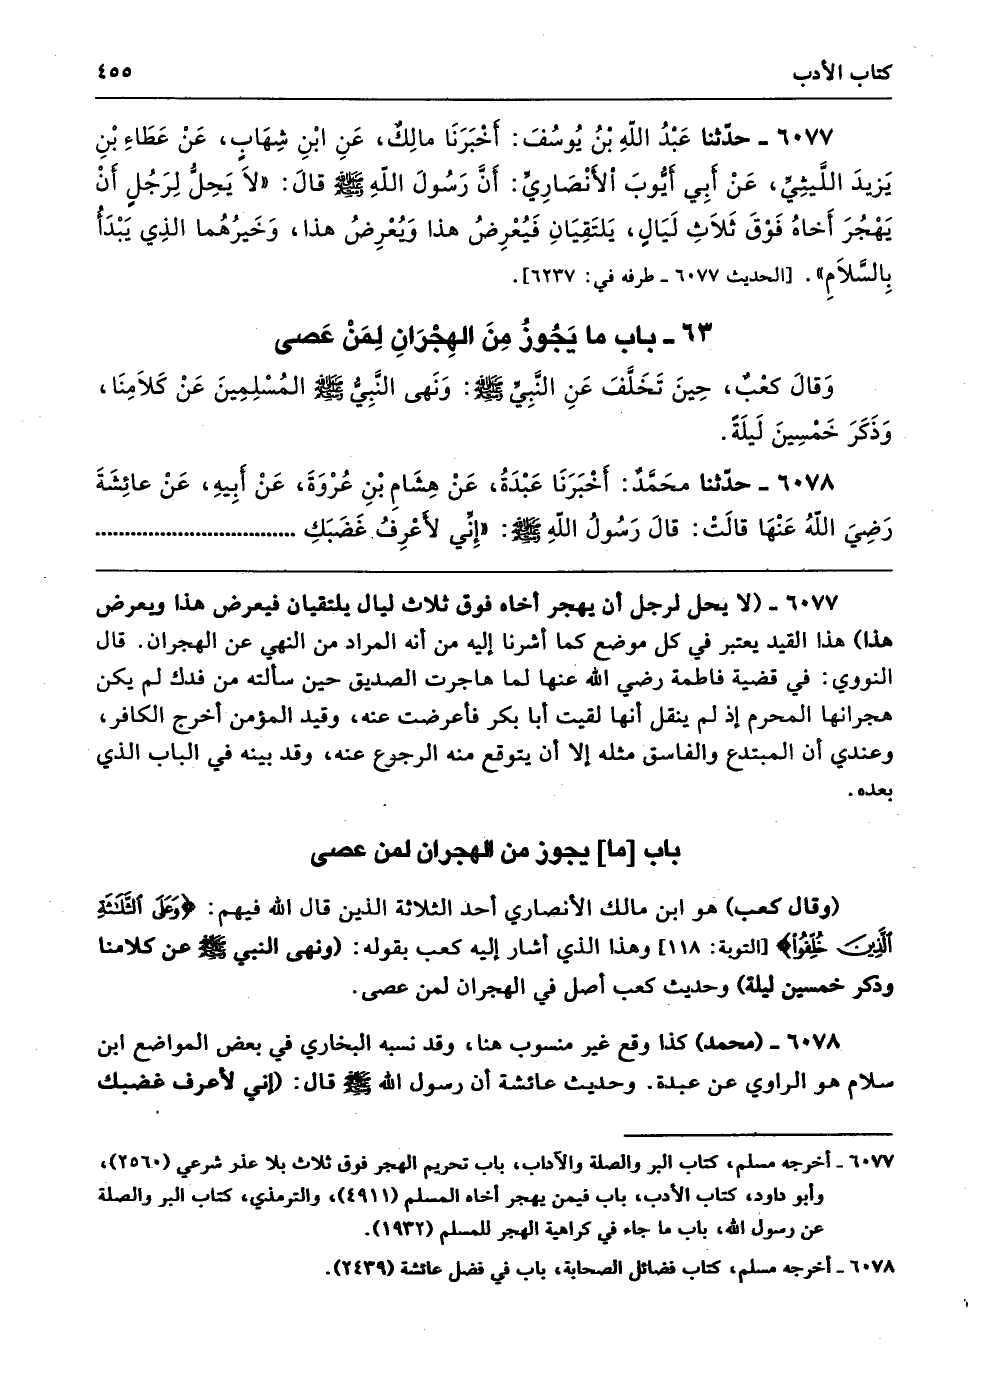 كتاب الأدب ٤٥٥
٦٠٧٧ - حدّثنا عَبْدُ اللّهِ بْنُ يُوسُفَ: أَخْبَرَنَا مالِكٌ، عَنِ ابْنِ شِهَابٍ، عَنْ عَطَاءِ بْنِ
يَزِيدَ اللَّيْثِيِّ، عَنْ أَبِي أَيُّوبَ الأَنْصَارِيِّ: أَنَّ رَسُولَ اللهِ ﷺ قالَ: «لاَ يَحِلُّ لِرَجُلٍ أَنْ
يَهْجُرَ أَخاهُ فَوْقَ ثَلاَثِ لَيَالٍ، يَلتَقِيَانِ فَيُعْرِضُ هذا وَيُعْرِضُ هذا، وَخَيرُهُما الذِي يَبْدَأُ
بِالسَّلاَمِ». [الحديث ٦٠٧٧ - طرفه في: ٦٢٣٧].
٦٣ - باب ما يَجُوزُ مِنَ الهِجْرَانِ لِمَنْ عَصى
وَقالَ كعْبٌ، حِينَ تَخَلَّفَ عَنِ النَّبِيِّ ﷺ: وَنَهى النَّبِيُّ ﷺ المُسْلِمِينَ عَنْ كَلاَمِنَا،
وَذَكَرَ خَمْسِينَ لَيلَةً.
٦٠٧٨ - حدّثنا محَمَّدٌ: أَخْبَرَنَا عَبْدَةُ، عَنْ هِشَامِ بْنِ عُرْوَةَ، عَنْ أَبِيهِ، عَنْ عائِشَةَ
رَضِيَ اللّهُ عَنْهَا قالَتْ: قالَ رَسُولُ اللهِ ﷺ: «إِنِّي لأَعْرِفُ غَضَبَكِ ..................................
٦٠٧٧ - (لا يحل لرجل أن يهجر أخاه فوق ثلاث ليال يلتقيان فيعرض هذا ويعرض
هذا) هذا القيد يعتبر في كل موضع كما أشرنا إليه من أنه المراد من النهي عن الهجران. قال
النووي: في قضية فاطمة رضي الله عنها لما هاجرت الصديق حين سألته من فدك لم يكن
هجرانها المحرم إذ لم ينقل أنها لقيت أبا بكر فأعرضت عنه، وقيد المؤمن أخرج الكافر،
وعندي أن المبتدع والفاسق مثله إلا أن يتوقع منه الرجوع عنه، وقد بينه في الباب الذي
بعده.
باب [ما] يجوز من الهجران لمن عصى
(وقال كعب) هو ابن مالك الأنصاري أحد الثلاثة الذين قال الله فيهم: ﴿وَعَلَى ٱلثَّلَٰثَةِ
ٱلَّذِينَ خُلِّفُوا۟﴾ [التوبة: ١١٨] وهذا الذي أشار إليه كعب بقوله: (ونهى النبي ﷺ عن كلامنا
وذكر خمسين ليلة) وحديث كعب أصل في الهجران لمن عصى.
٦٠٧٨ - (محمد) كذا وقع غير منسوب هنا، وقد نسبه البخاري في بعض المواضع ابن
سلام هو الراوي عن عبدة. وحديث عائشة أن رسول الله ﷺ قال: (إني لأعرف غضبك
٦٠٧٧ - أخرجه مسلم، كتاب البر والصلة والآداب، باب تحريم الهجر فوق ثلاث بلا عذر شرعي (٢٥٦٠)،
وأبو داود، كتاب الأدب، باب فيمن يهجر أخاه المسلم (٤٩١١)، والترمذي، كتاب البر والصلة
عن رسول الله، باب ما جاء في كراهية الهجر للمسلم (١٩٣٢).
٦٠٧٨ - أخرجه مسلم، كتاب فضائل الصحابة، باب في فضل عائشة (٢٤٣٩).